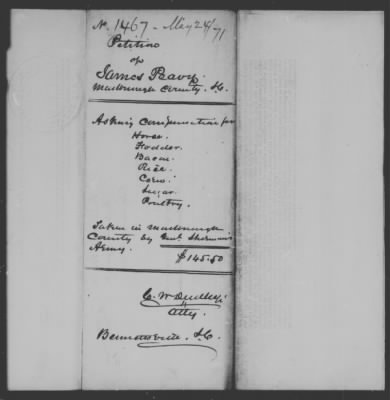 No. 1467 - May 24/71
Petition
of
James Peavy.
Marlborough County. S.C.
Asking Compensation for
Horse.
Fodder.
Bacon.
Rice.
Corn.
Sugar.
Poultry.
Taken in Marlborough
County by Genl. Sherman's
Army.
$145.50
C. W. Dudley.
Atty.
Bennettsville. S.C.